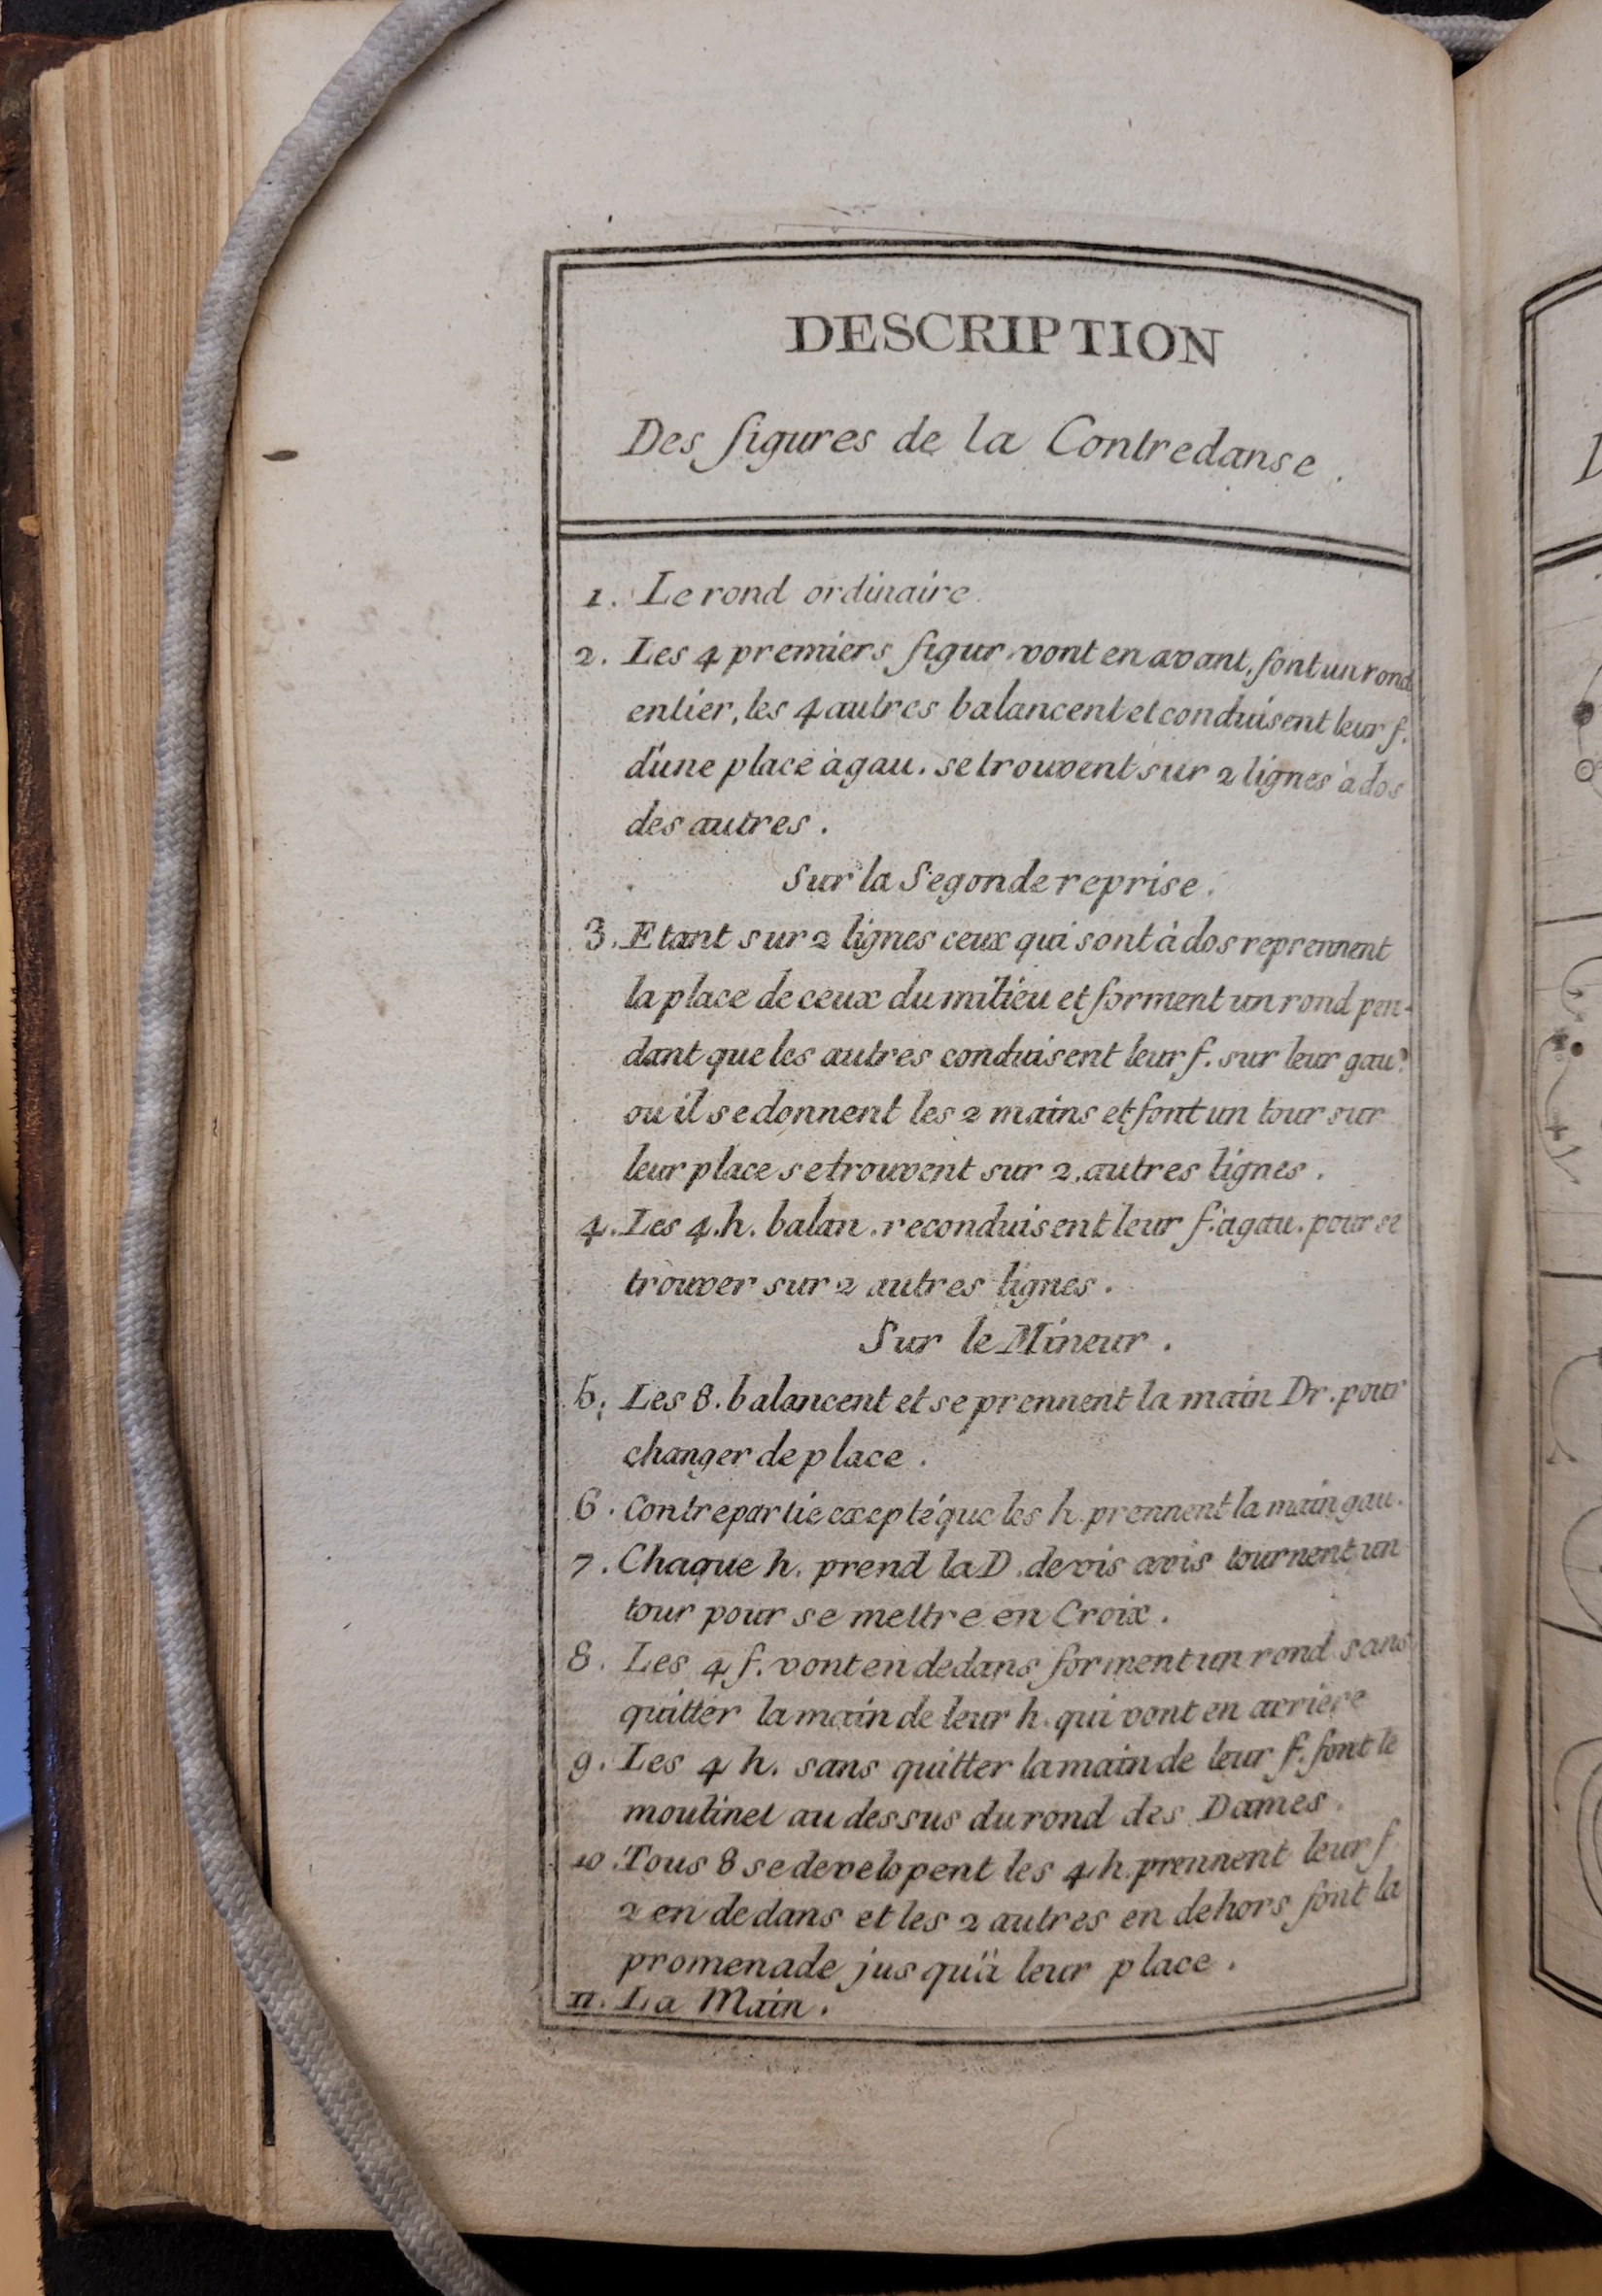 DESCRIPTION
Des figures de la Contredanse.
1. Le rond ordinaire.
2. Les 4 premiers figur. vont en avant, font un rond
entier, les 4 autres balancent et conduisent leur f.
d'une place à gau. se trouvent sur 2 lignes à dos
des autres.
Sur la Segonde reprise.
3. Etant sur 2 lignes ceux qui sont à dos reprennent
la place de ceux du milieu et forment un rond pen-
dant que les autres conduisent leur f. sur leur gau.
ou il se donnent les 2 mains et font un tour sur
leur place se trouvent sur 2. autres lignes.
4. Les 4. h. balan. reconduisent leur f. a gau. pour se
trouver sur 2 autres lignes.
Sur le Mineur.
5. Les 8. balancent et se prennent la main Dr. pour
changer de place.
6. Contrepartie excepté que les h. prennent la main gau.
7. Chaque h. prend la D. de vis avis tournent un
tour pour se mettre en Croix.
8. Les 4 f. vont en dedans forment un rond sans
quitter la main de leur h. qui vont en arriere
9. Les 4 h. sans quitter la main de leur f. font le
moulinet au dessus du rond des Dames.
10. Tous 8 se developent les 4 h. prennent leur f
2 en dedans et les 2 autres en dehors font la
promenade jusqu'à leur place.
11. La Main.